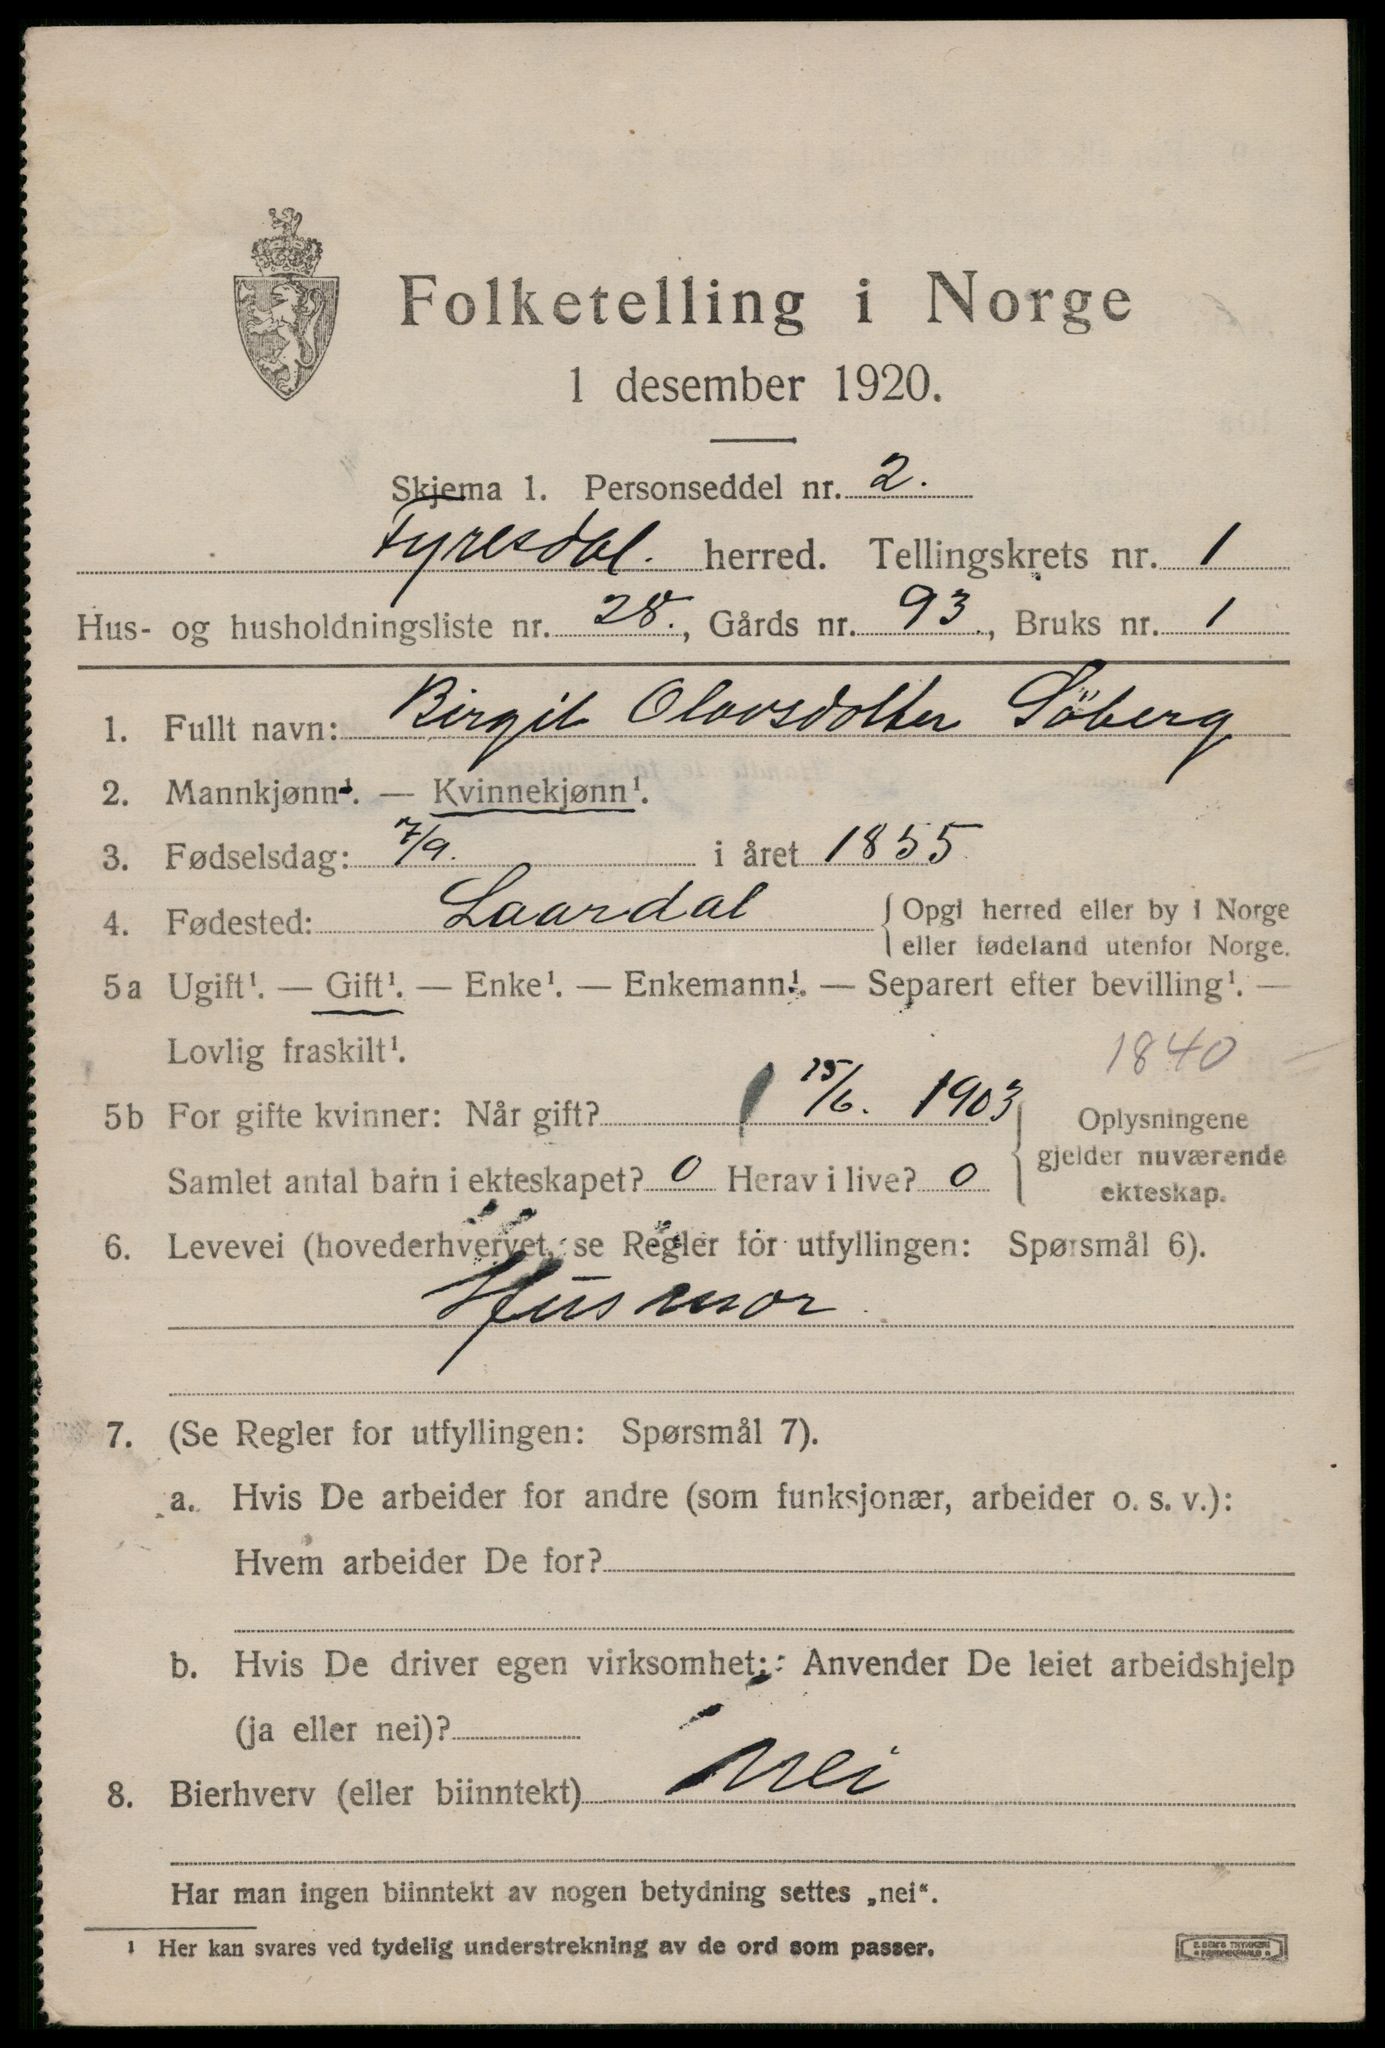 Folketelling i Norge
1 desember 1920.
Skjema 1. Personseddel nr. 2.
Fyresdal. herred. Tellingskrets nr. 1
Hus- og husholdningsliste nr. 28., Gårds nr. 93, Bruks nr. 1
1. Fullt navn: Birgit Olavsdotter Söberg
2. Mannkjønn¹. — Kvinnekjønn¹.
3. Fødselsdag: 7/9. i året 1855
4. Fødested: Laardal { Opgi herred eller by i Norge
eller fødeland utenfor Norge.
5a Ugift¹. — Gift¹. — Enke¹. — Enkemann¹. — Separert efter bevilling¹. —
Lovlig fraskilt¹.
1840
5b For gifte kvinner: Når gift? 15/6. 1903
Samlet antal barn i ekteskapet? 0 Herav i live? 0
Oplysningene
gjelder nuværende
ekteskap.
6. Levevei (hovederhvervet, se Regler for utfyllingen: Spørsmål 6).
Husmor
7. (Se Regler for utfyllingen: Spørsmål 7).
a. Hvis De arbeider for andre (som funksjonær, arbeider o. s. v.):
Hvem arbeider De for?
b. Hvis De driver egen virksomhet: Anvender De leiet arbeidshjelp
(ja eller nei)?
8. Bierhverv (eller biinntekt) Nei
Har man ingen biinntekt av nogen betydning settes „nei“.
1 Her kan svares ved tydelig understrekning av de ord som passer.